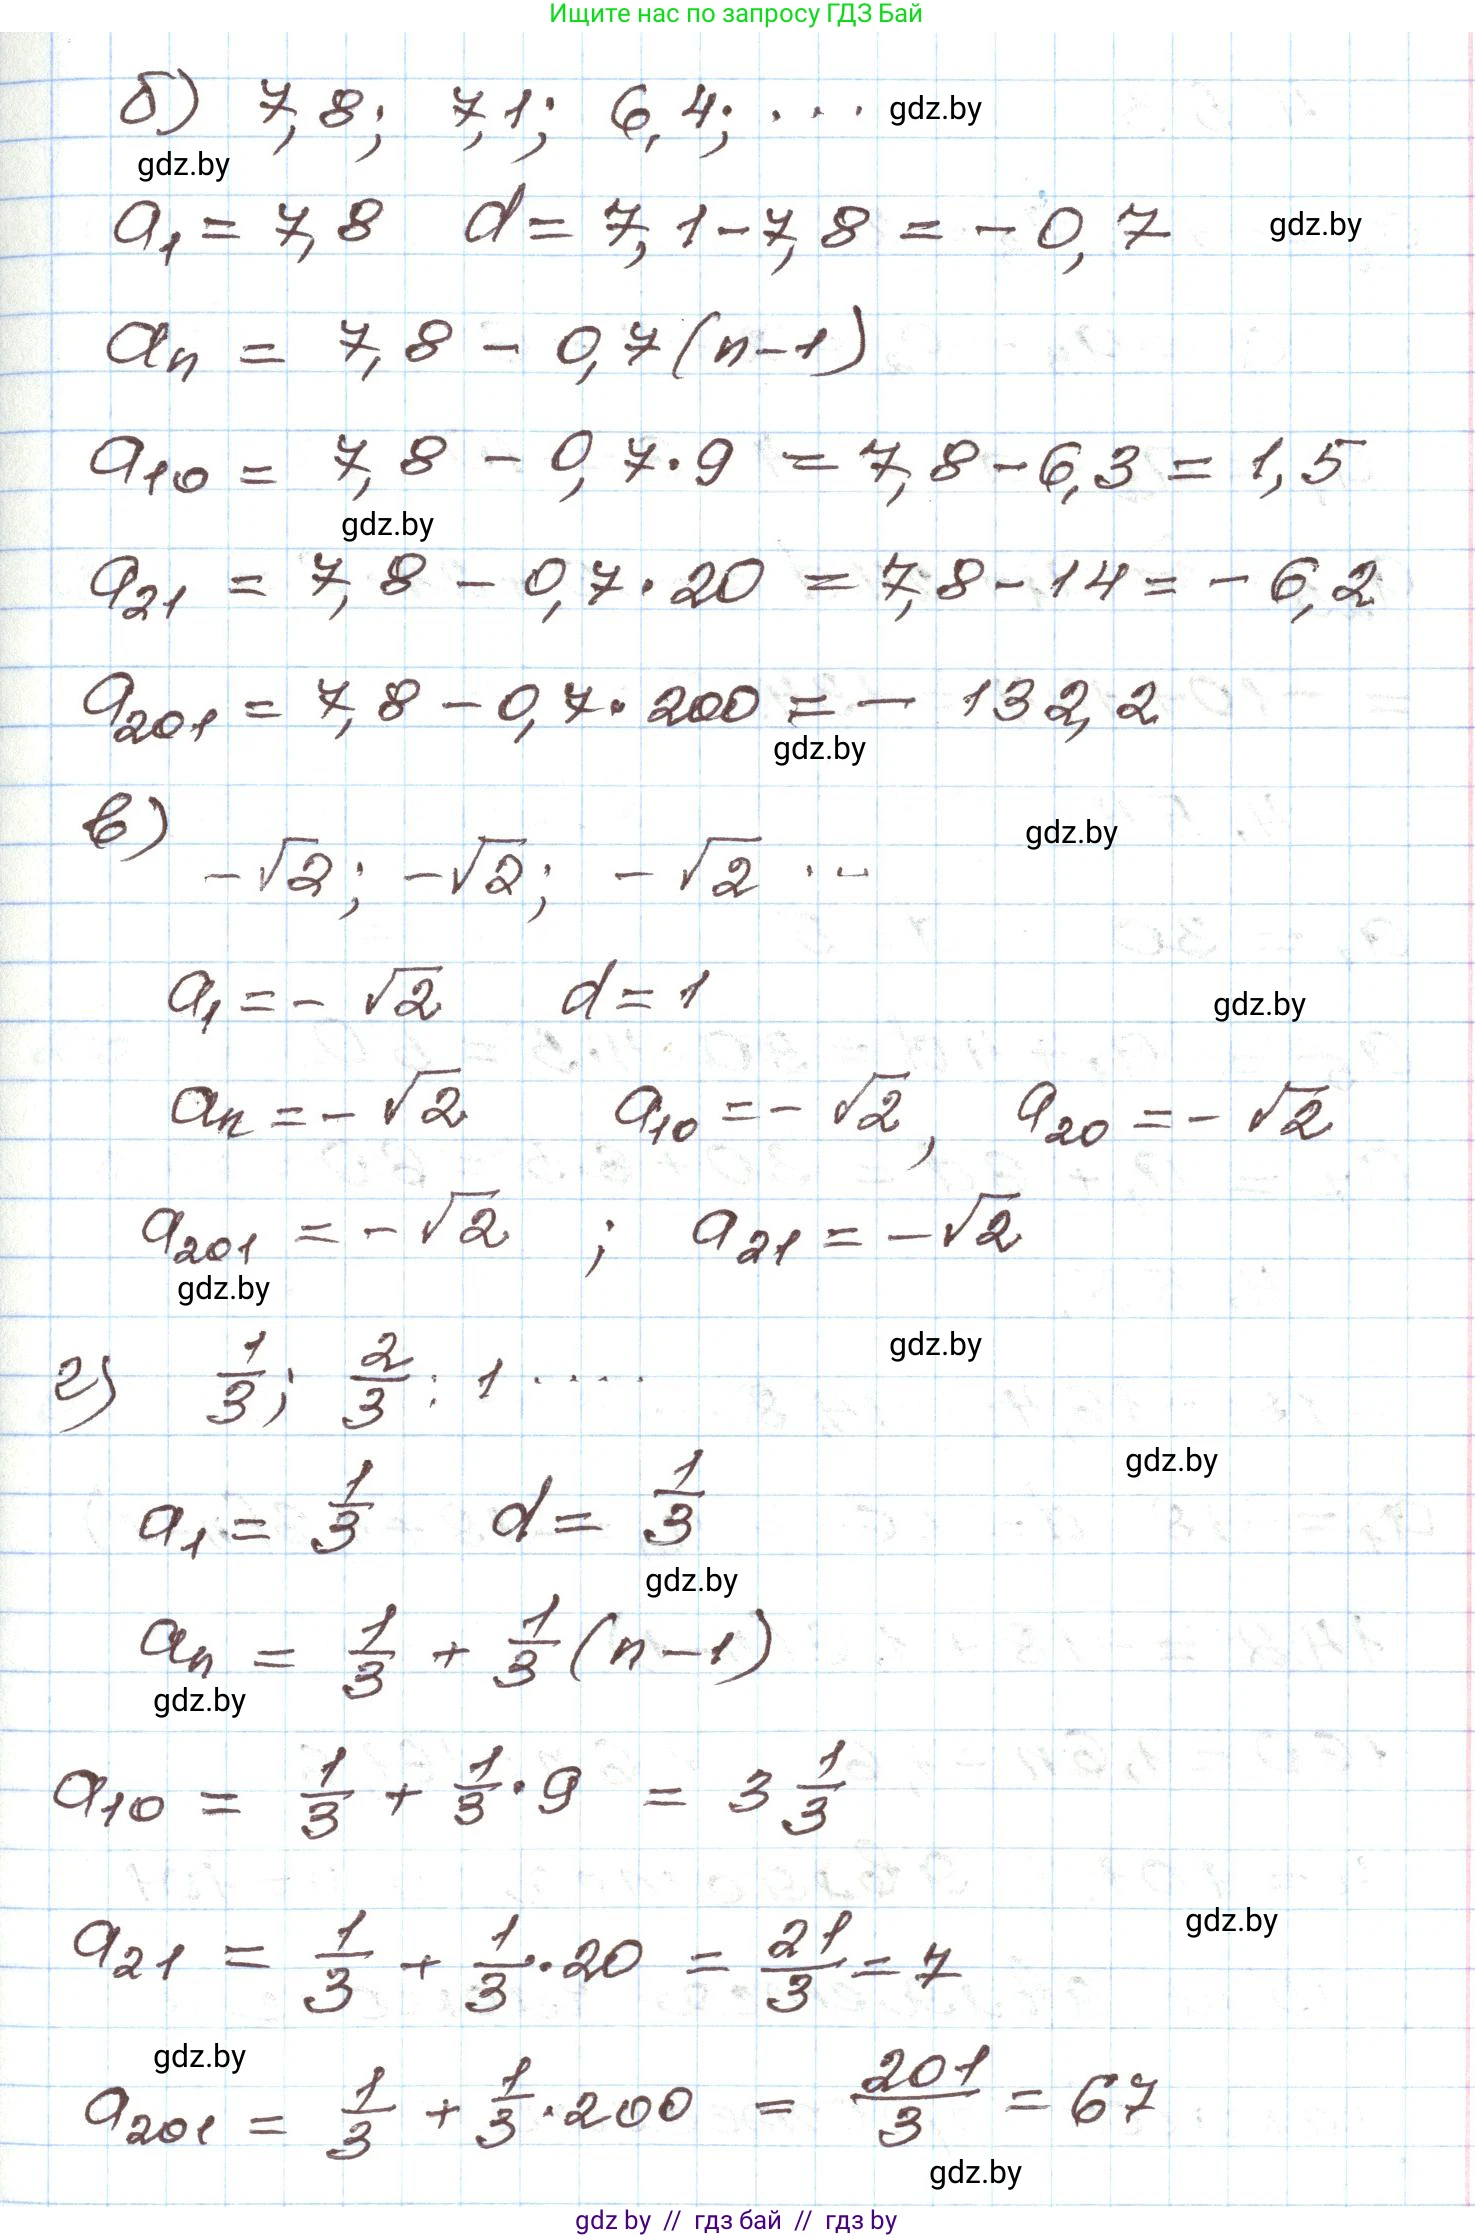 Ищите нас по запросу ГДЗ Бай
б) 7,8; 7,1; 6,4; ... gdz.by
gdz.by
a₁ = 7,8 d = 7,1 - 7,8 = -0,7 gdz.by
aₙ = 7,8 - 0,7(n-1)
a₁₀ = 7,8 - 0,7·9 = 7,8 - 6,3 = 1,5
gdz.by
a₂₁ = 7,8 - 0,7·20 = 7,8 - 14 = -6,2
a₂₀₁ = 7,8 - 0,7·200 = -132,2
gdz.by
в) gdz.by
-√2; -√2; -√2 ...
a₁ = -√2 d = 1 gdz.by
aₙ = -√2 a₁₀ = -√2, a₂₀ = -√2
a₂₀₁ = -√2 ; a₂₁ = -√2
gdz.by
gdz.by
г) 1/3; 2/3; 1 .....
gdz.by
a₁ = 1/3 d = 1/3
gdz.by
aₙ = 1/3 + 1/3(n-1)
gdz.by
a₁₀ = 1/3 + 1/3·9 = 3 1/3
gdz.by
a₂₁ = 1/3 + 1/3·20 = 21/3 = 7
gdz.by
a₂₀₁ = 1/3 + 1/3·200 = 201/3 = 67
gdz.by
gdz by // гдз бай // гдз by